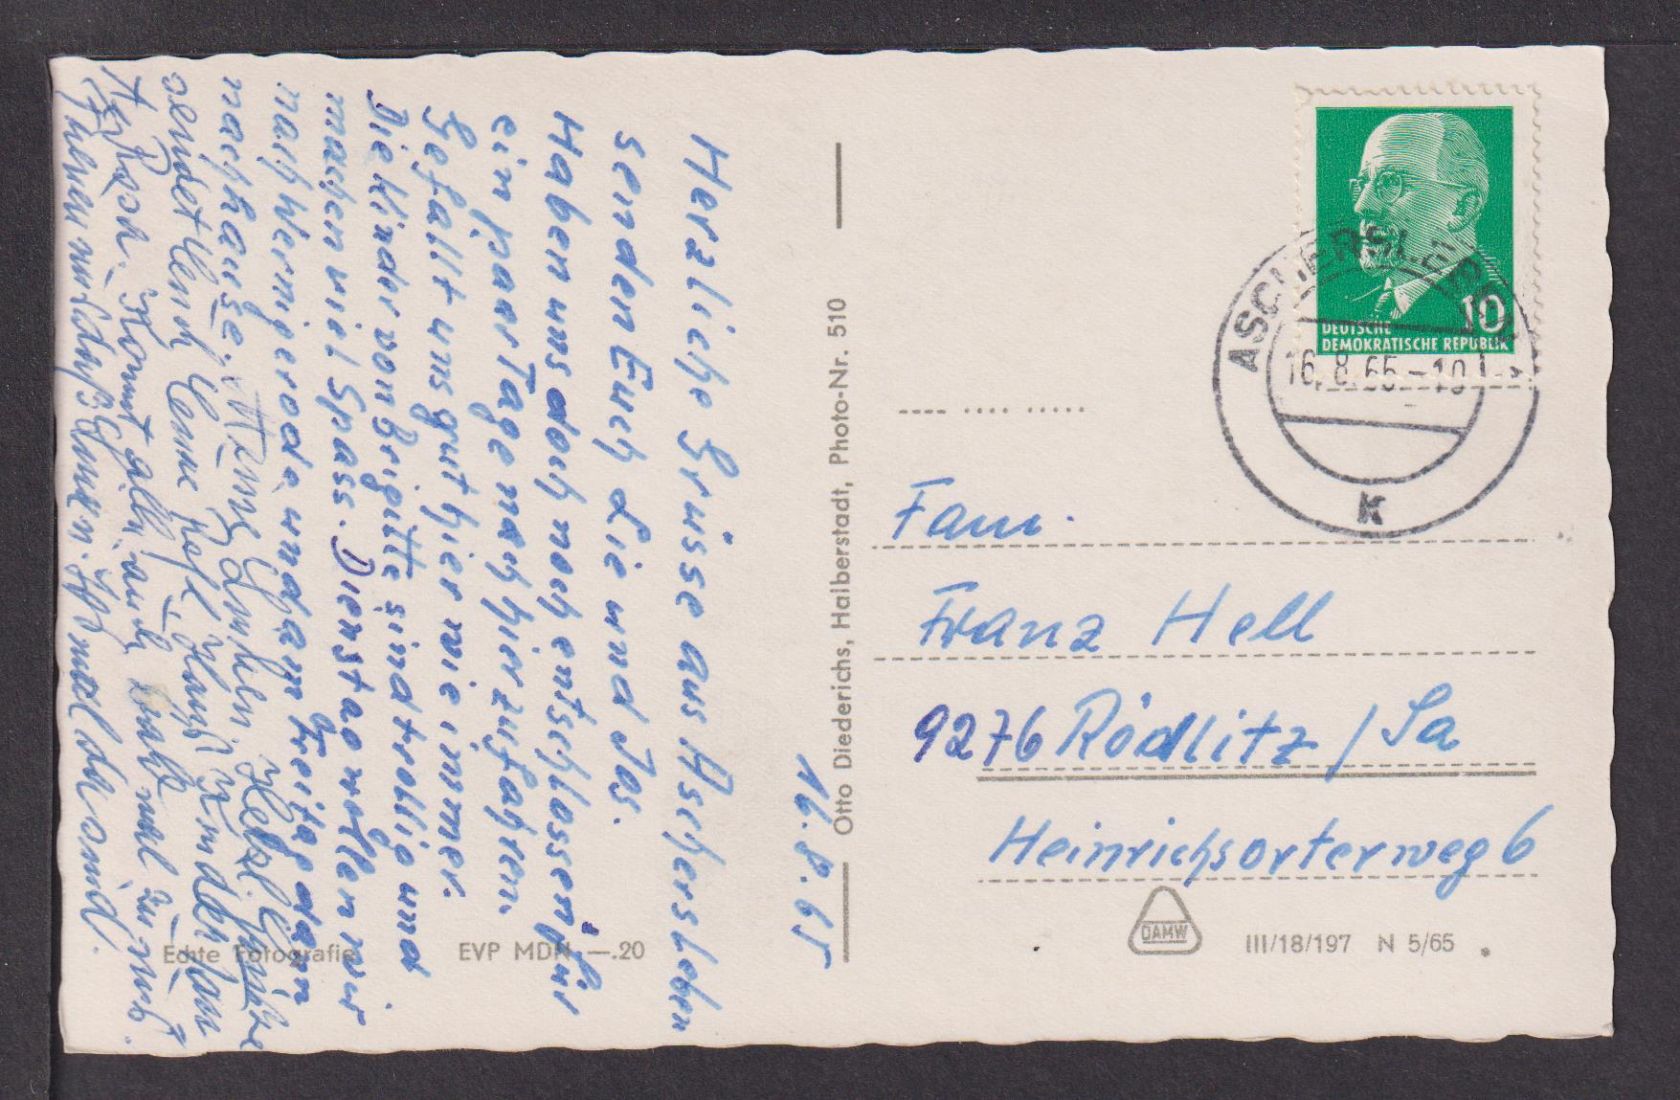 Herzliche Grüsse aus Aschersleben
senden Euch Lie und Jos.
Haben uns doch noch entschlossen für
ein paar Tage nach hier zu fahren.
Gefällt uns gut hier wie immer.
Die Kinder von Brigitte sind trollig und
machen viel Spass. Dienstag wollen wir
nach Wernigerode und am Freitag dann
nachhause. Herzl. Grüße
sendet Euch Kinder
Kommt alle auch bald mal zu uns.
16.8.65
Otto Diederichs, Halberstadt, Photo-Nr. 510
Echte Fotografie
EVP MDN —.20
10
DEUTSCHE
DEMOKRATISCHE REPUBLIK
ASCHERSLEBEN
16.8.65-10
K
Fam.
Franz Hell
9276 Rödlitz / Sa
Heinrichsorterweg 6
DAMW
III/18/197 N 5/65